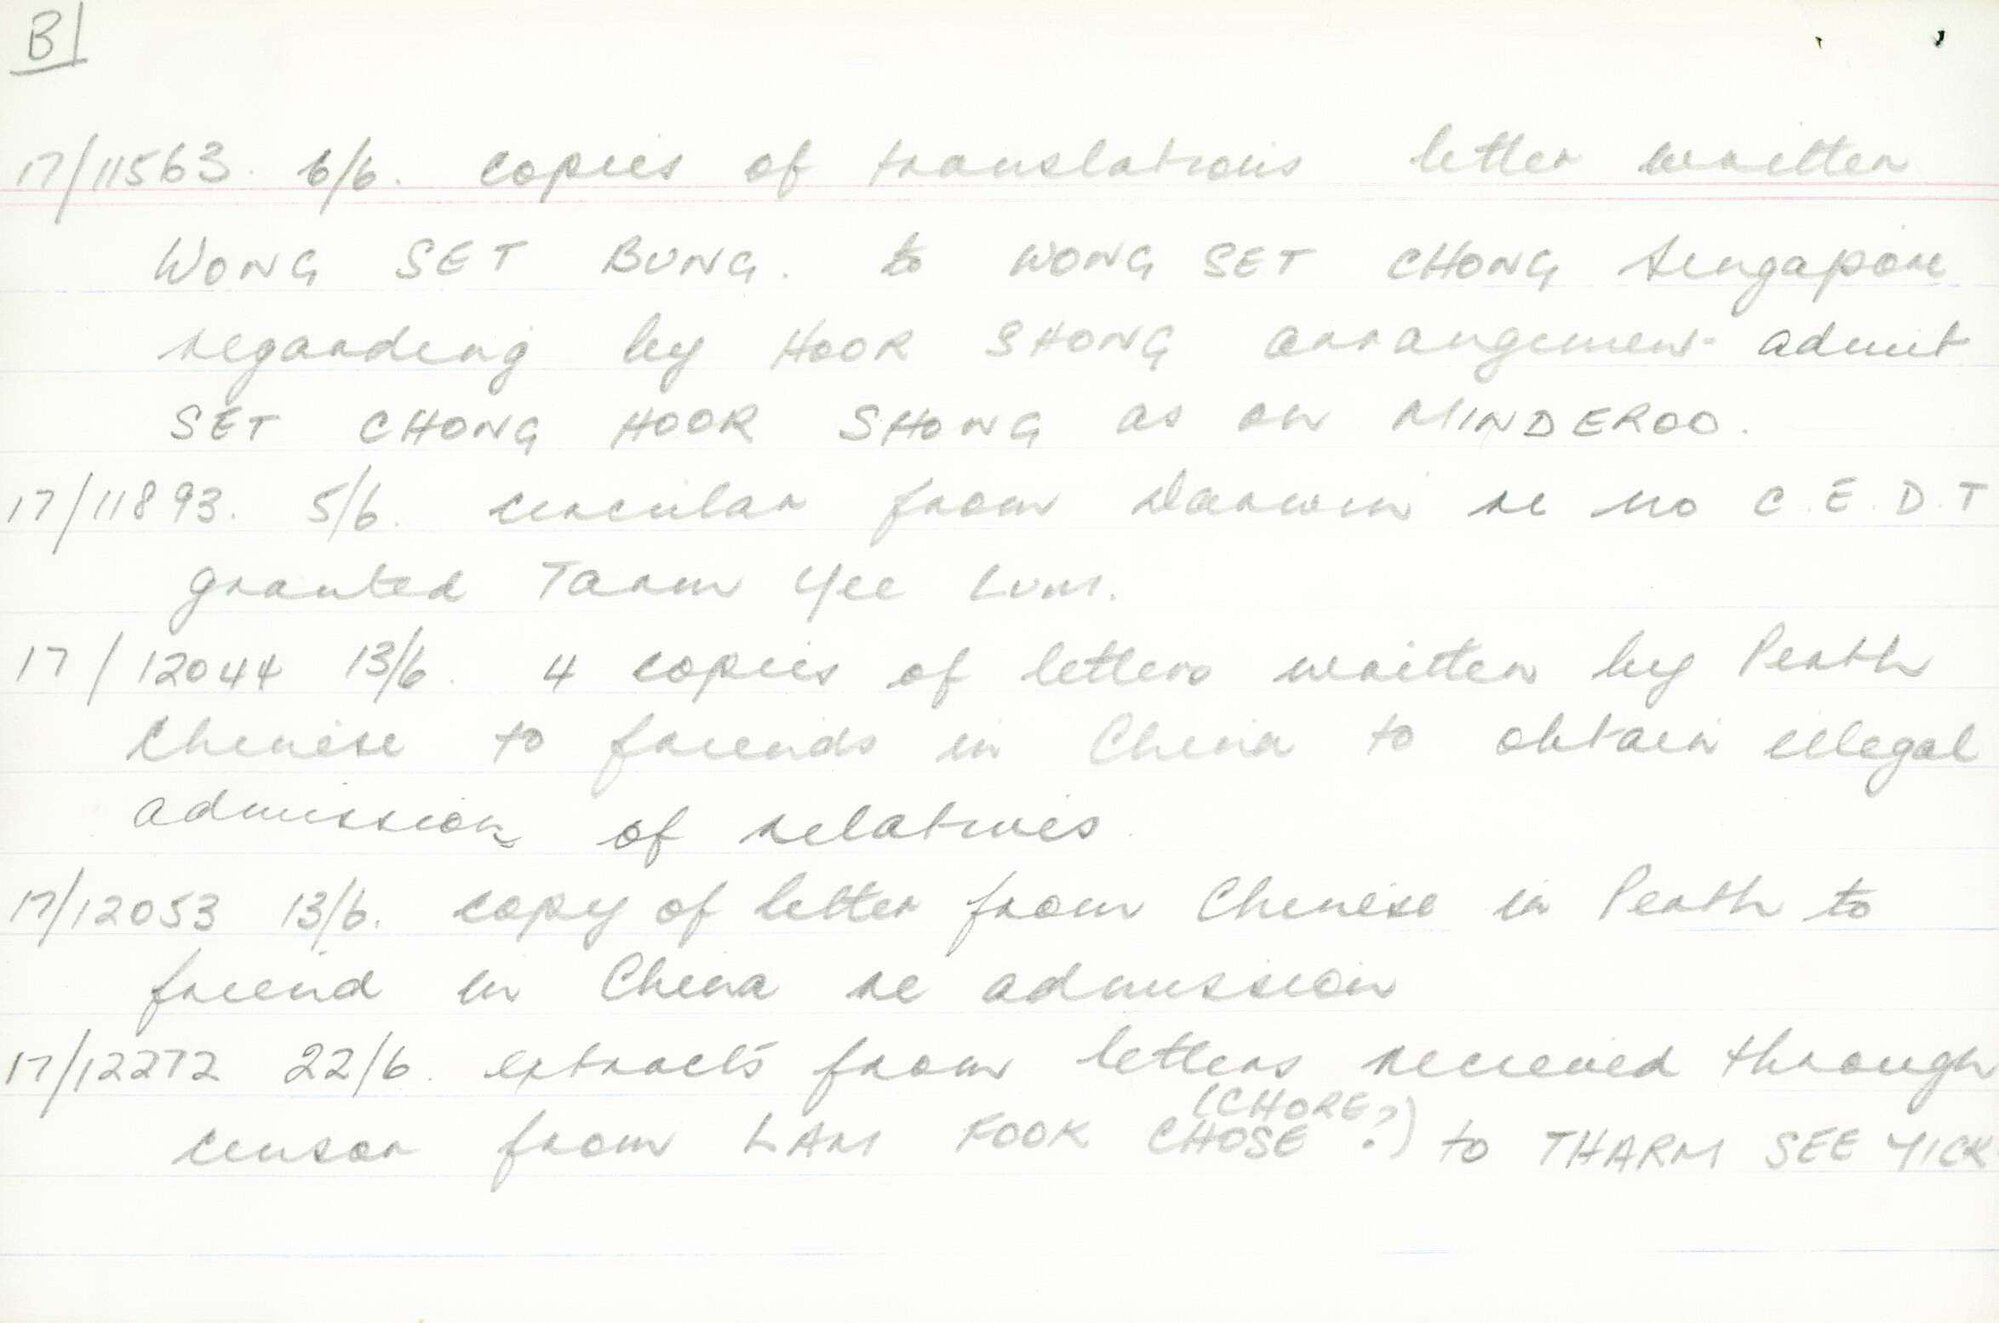 B
17/11563. 6/6. copies of translations letter written
WONG SET BUNG. to WONG SET CHONG Singapore
regarding by HOOK SHONG arrangement admit
SET CHONG HOOK SHONG as on MINDEROO.
17/11893. 5/6. circular from Darwin re no C.E.D.T
granted Tarm Yee Lum.
17/12044 13/6. 4 copies of letters written by Perth
Chinese to friends in China to obtain illegal
admission of relatives.
17/12053 13/6. copy of letter from Chinese in Perth to
friend in China re admission
17/12272 22/6. extracts from letters recieved through
(CHORE?)
censor from LAM FOOK CHOSE to THARM SEE YICK